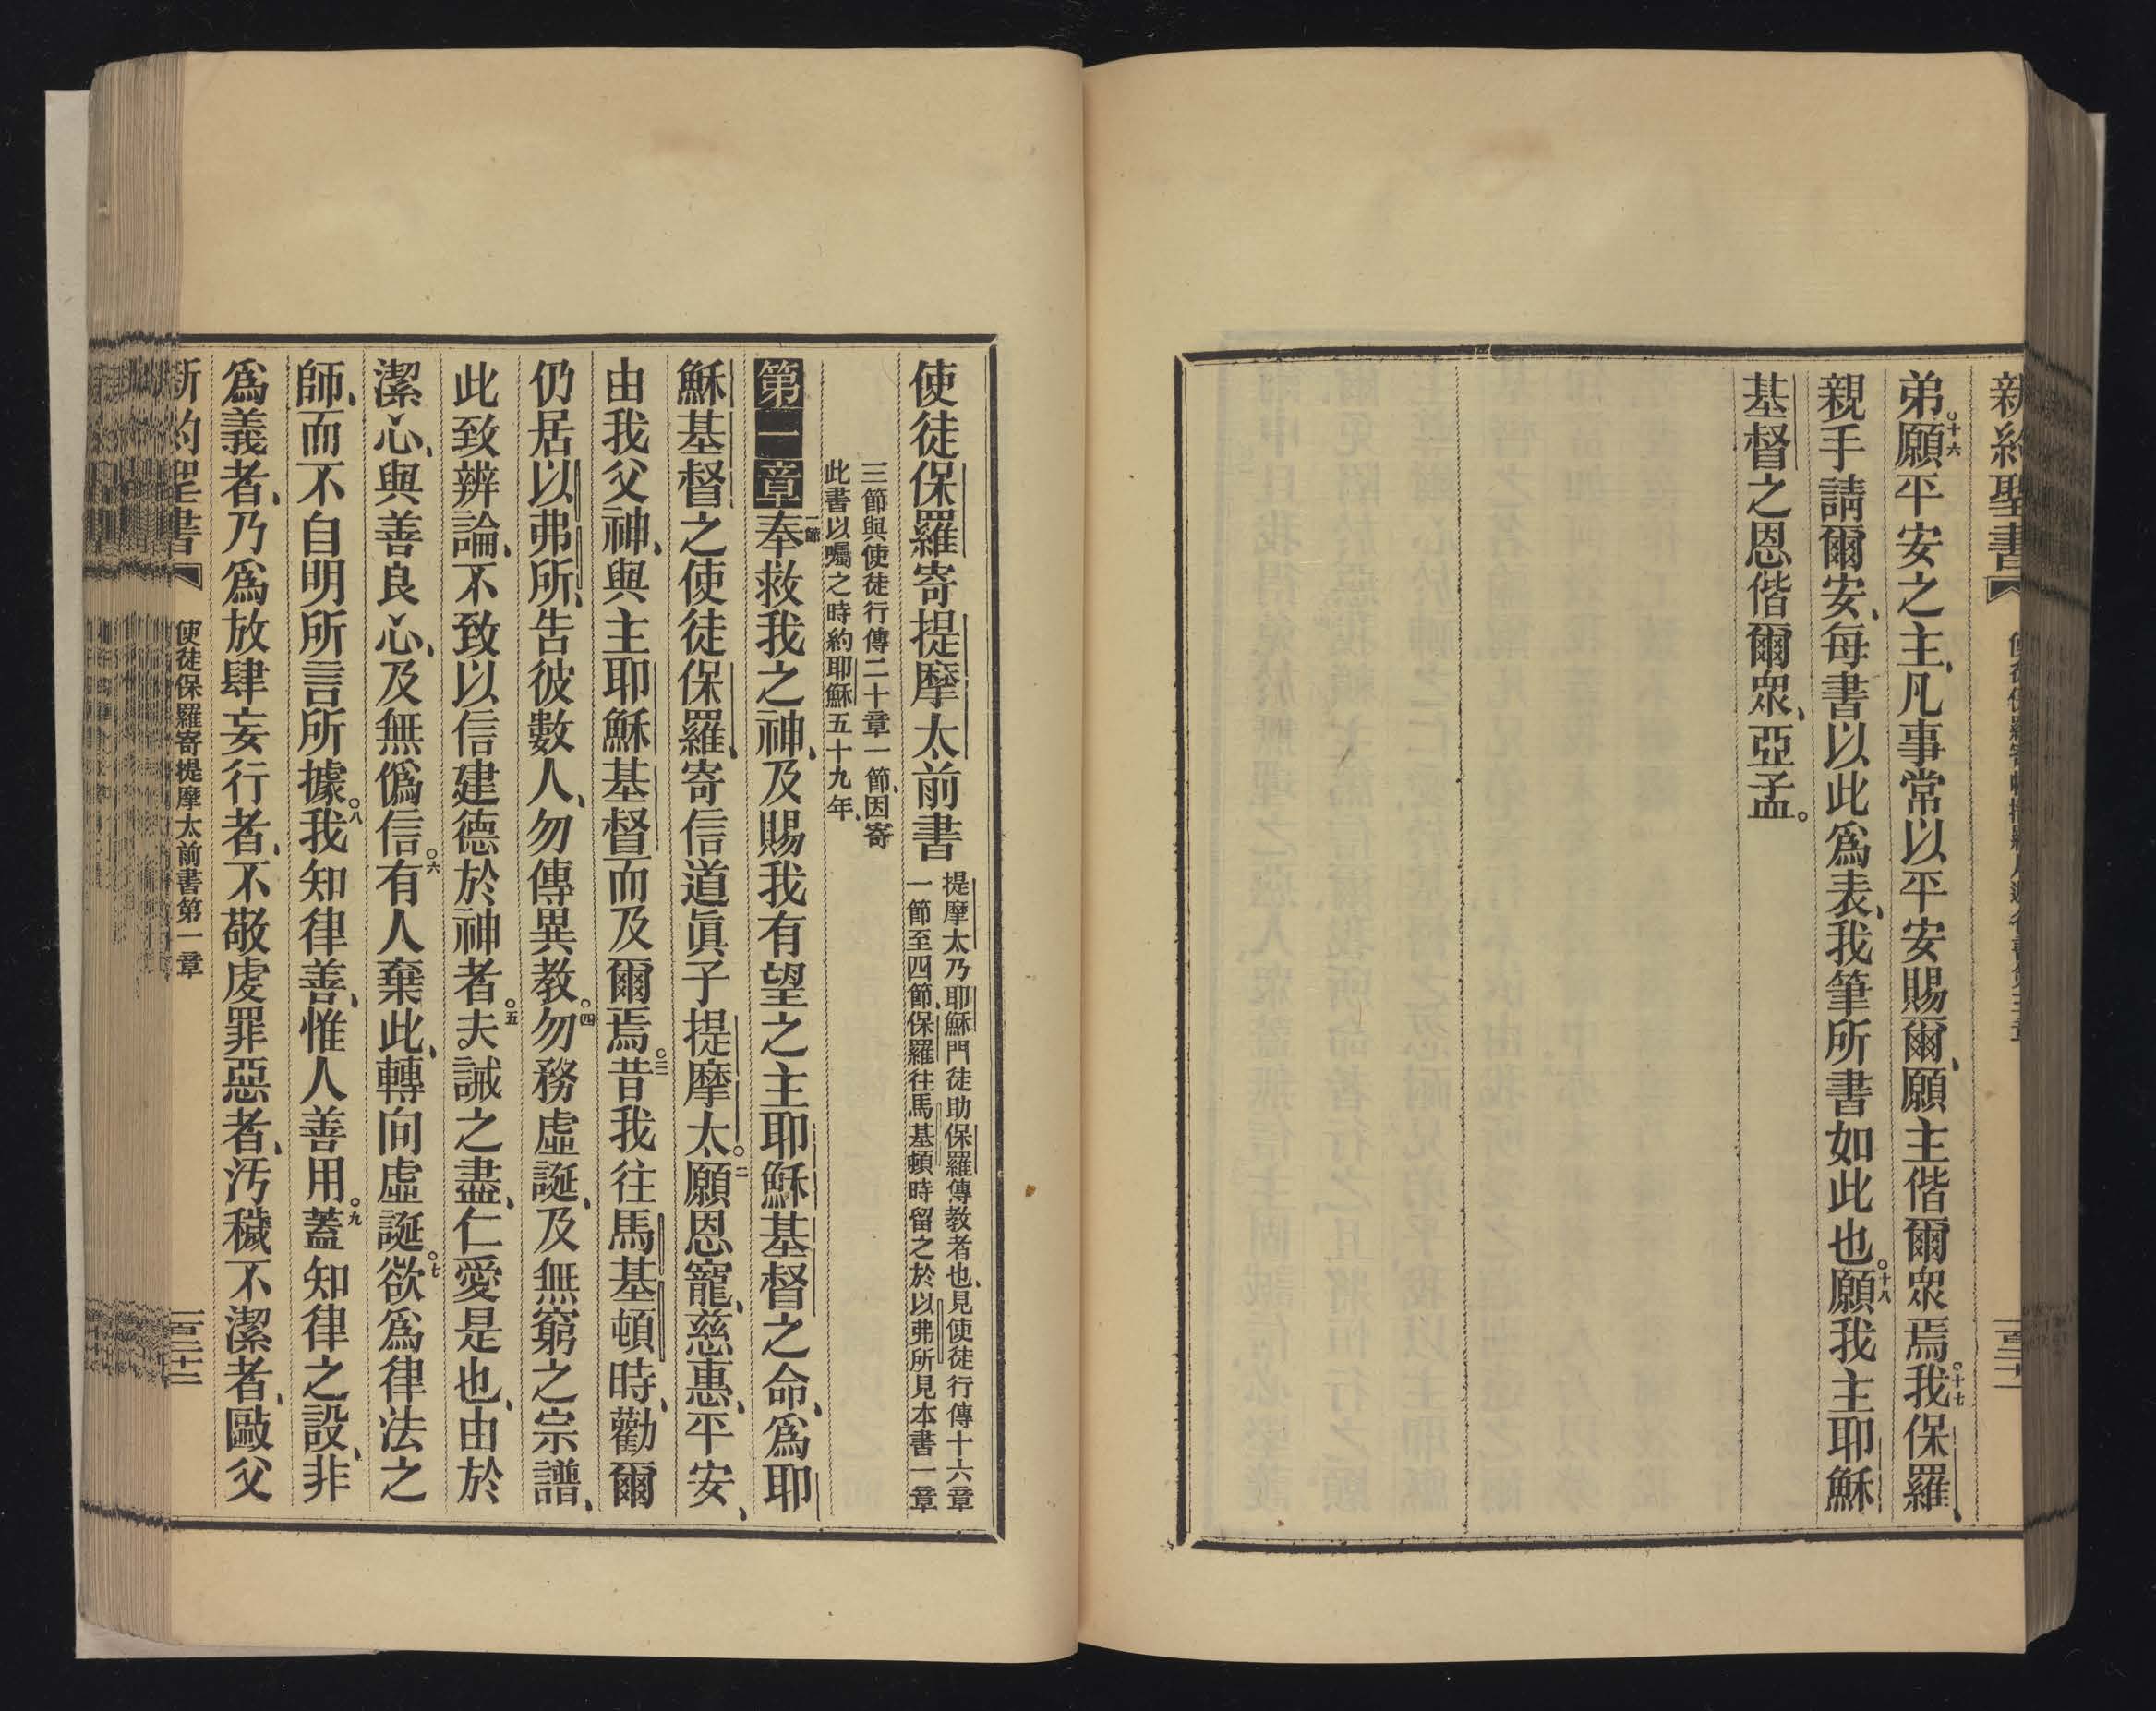 新約聖書
弟。十六願平安之主、凡事常以平安賜爾、願主偕爾眾焉。十七我保羅、
親手請爾安、每書以此爲表、我筆所書如此也。十八願我主耶穌
基督之恩偕爾眾、亞孟。
使徒保羅寄提摩太前書
提摩太乃耶穌門徒助保羅傳教者也、見使徒行傳十六章
一節至四節、保羅往馬基頓時留之於以弗所見本書一章
三節與使徒行傳二十章一節、因寄
此書以囑之時約耶穌五十九年、
第一章一節奉救我之神、及賜我有望之主耶穌基督之命、爲耶
穌基督之使徒保羅、寄信道眞子提摩太。二願恩寵、慈惠、平安、
由我父神、與主耶穌基督而及爾焉。三昔我往馬基頓時、勸爾
仍居以弗所、告彼數人、勿傳異教。四勿務虛誕、及無窮之宗譜、
此致辨論、不致以信建德於神者。五夫誡之盡、仁愛是也、由於
潔心、與善良心、及無僞信。六有人棄此、轉向虛誕。七欲爲律法之
師、而不自明所言所據。八我知律善、惟人善用。九蓋知律之設、非
爲義者、乃爲放肆妄行者、不敬虔罪惡者、汚穢不潔者、毆父
新約聖書 使徒保羅寄提摩太前書第一章